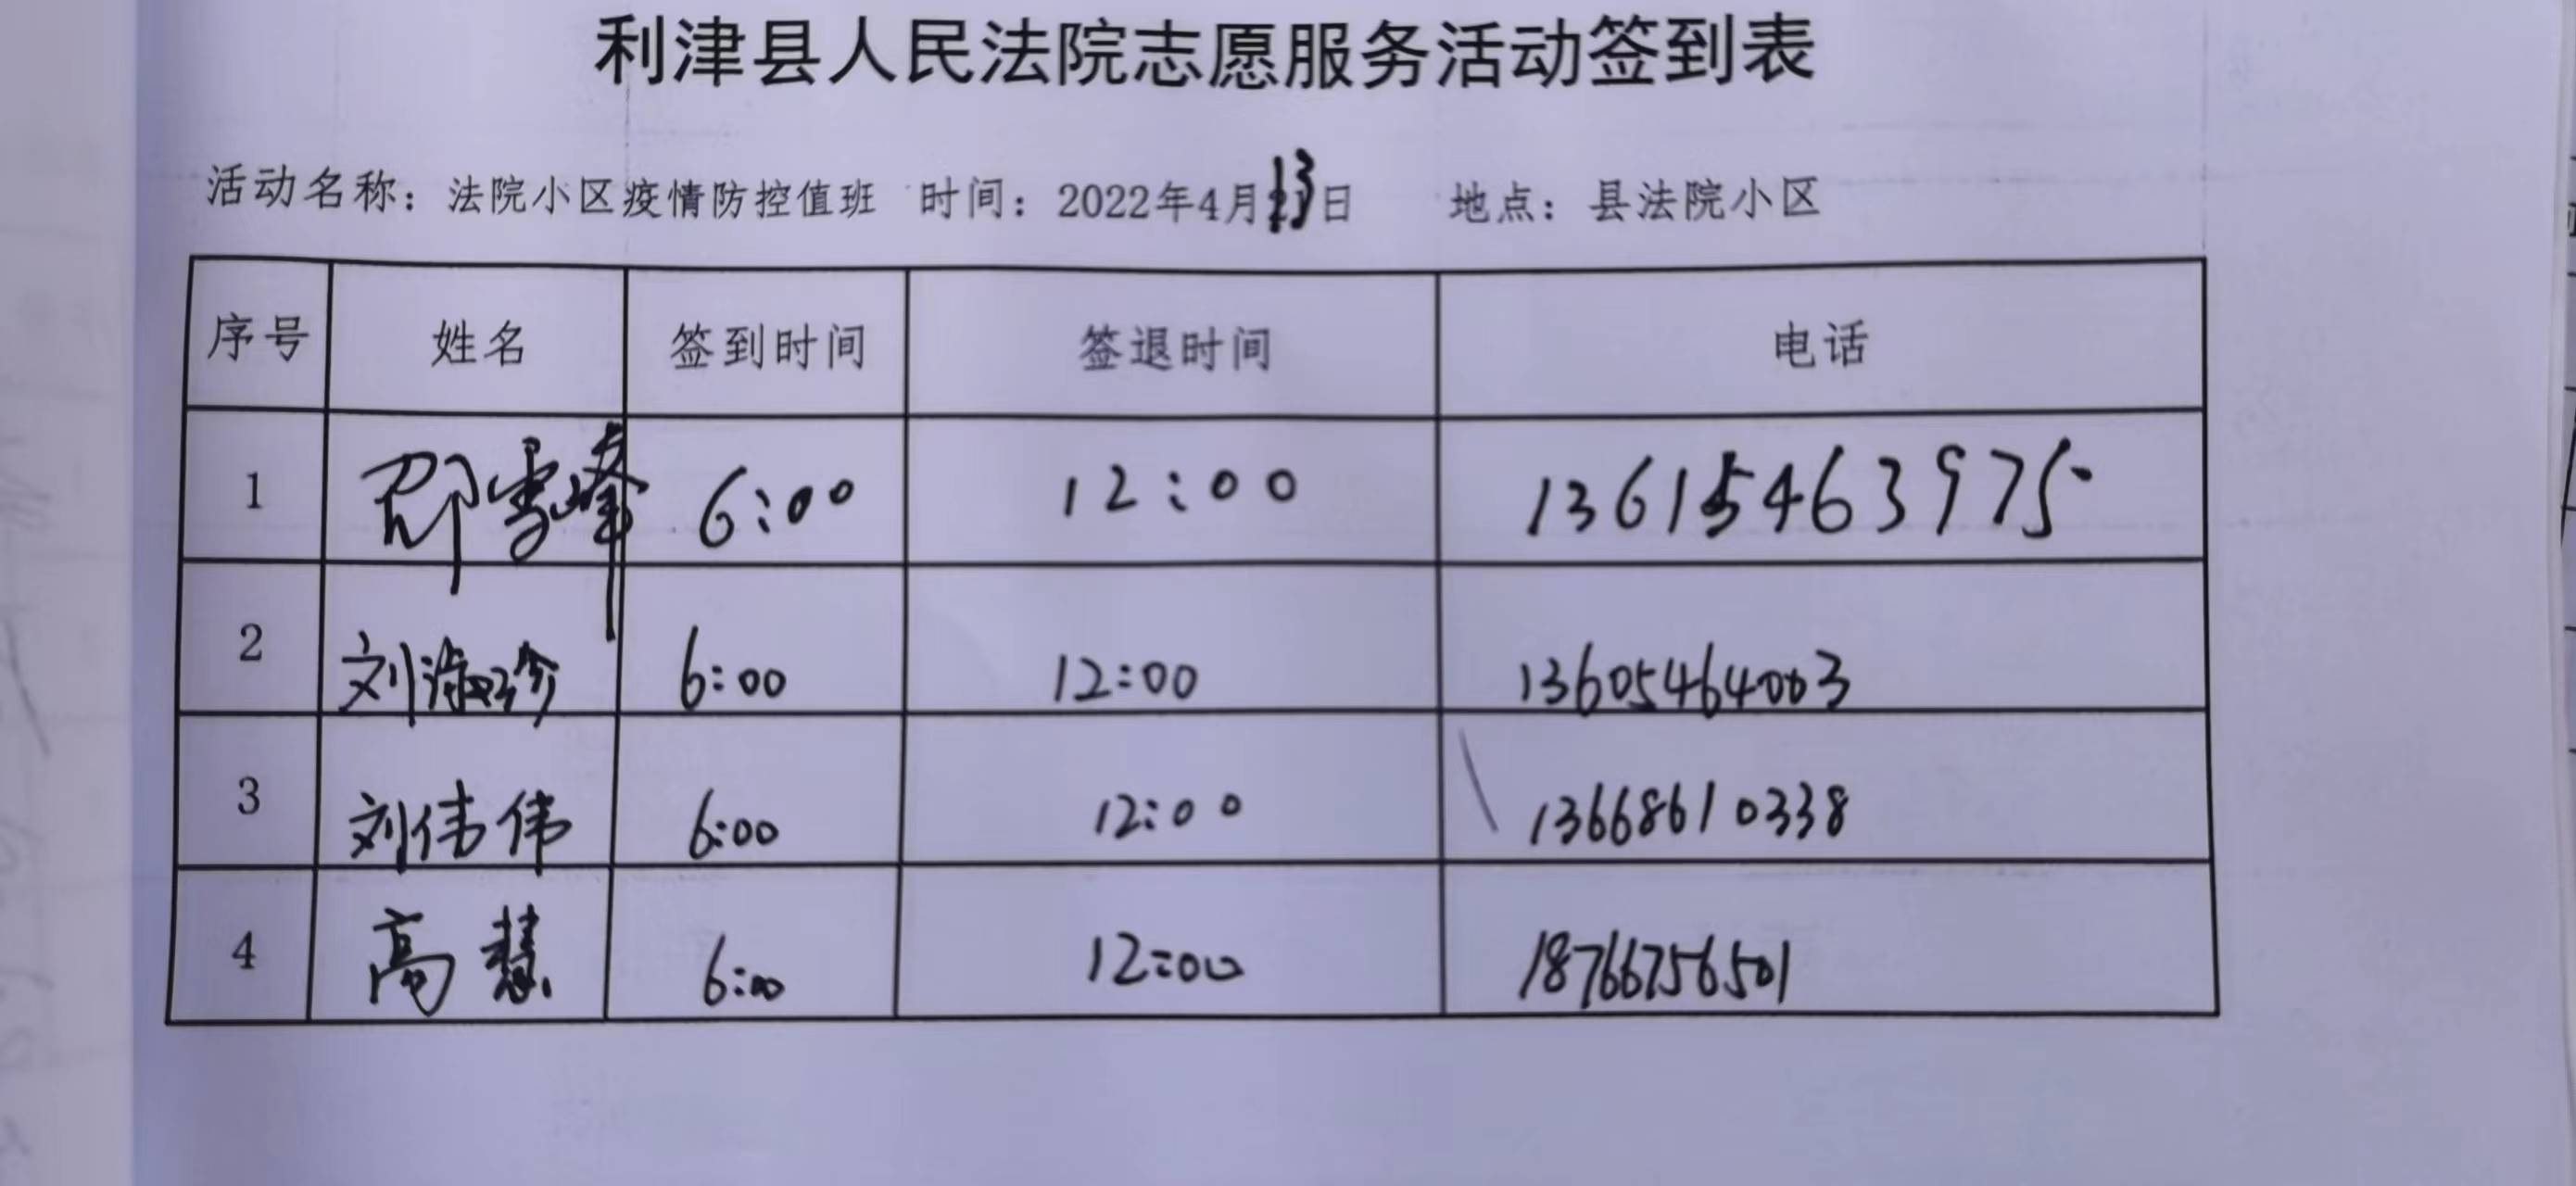 利津县人民法院志愿服务活动签到表
活动名称：法院小区疫情防控值班 时间：2022年4月13日 地点：县法院小区
序号 姓名 签到时间 签退时间 电话
1 邵雪峰 6:00 12:00 13615463975
2 刘淑珍 6:00 12:00 13605464003
3 刘伟伟 6:00 12:00 13668610338
4 高慧 6:00 12:00 18766756501